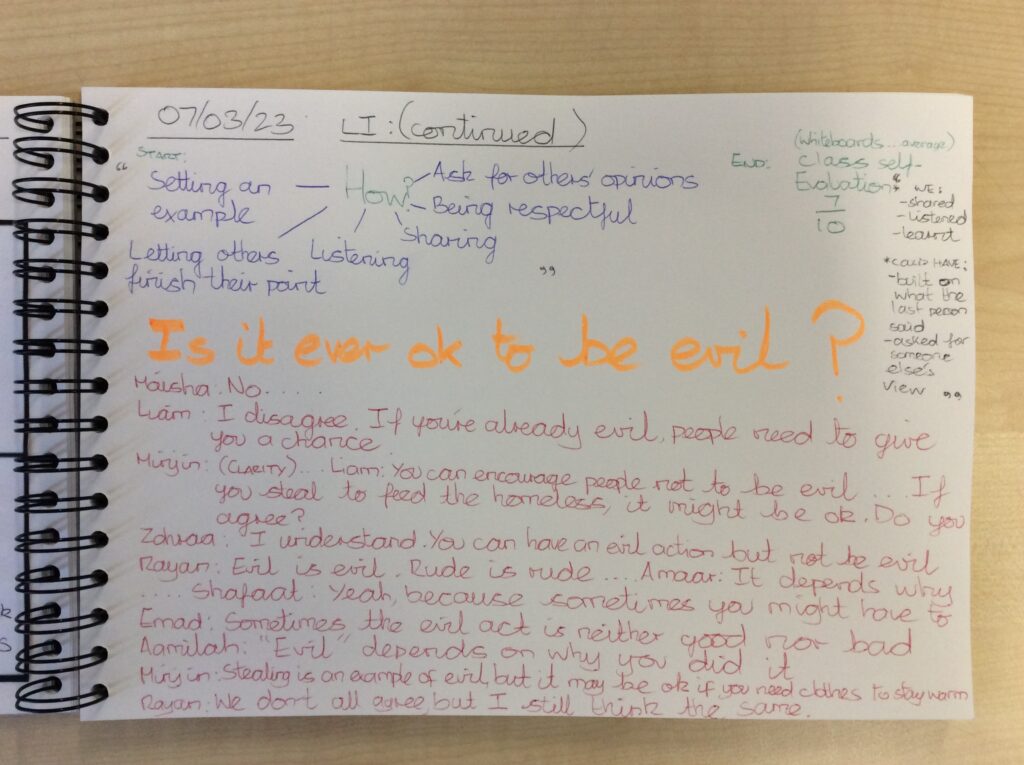 07/03/23 LI: (continued)
START:
"
Setting an
example
How?
Ask for others' opinions
Being respectful
Sharing
Listening
Letting others
finish their point
"
END:
(whiteboards...average)
class self-
Evaluation:
7
10
" WE:
-shared
-listened
-learnt
*COULD HAVE:
-built on
what the
last person
said
-asked for
someone
else's
view "
Is it ever ok to be evil?
Máisha: No.....
Liam: I disagree. If you're already evil, people need to give
you a chance
Minjin: (CLARITY)... Liam: You can encourage people not to be evil ... If
you steal to feed the homeless, it might be ok. Do you
agree?
Zahraa: I understand. You can have an evil action but not be evil
Rayan: Evil is evil. Rude is rude .... Amaar: It depends why
.... Shafaat: Yeah, because sometimes you might have to
Emad: Sometimes the evil act is neither good nor bad
Aamilah: "Evil" depends on why you did it
Minjin: Stealing is an example of evil, but it may be ok if you need clothes to stay warm
Rayan: We don't all agree, but I still think the same.